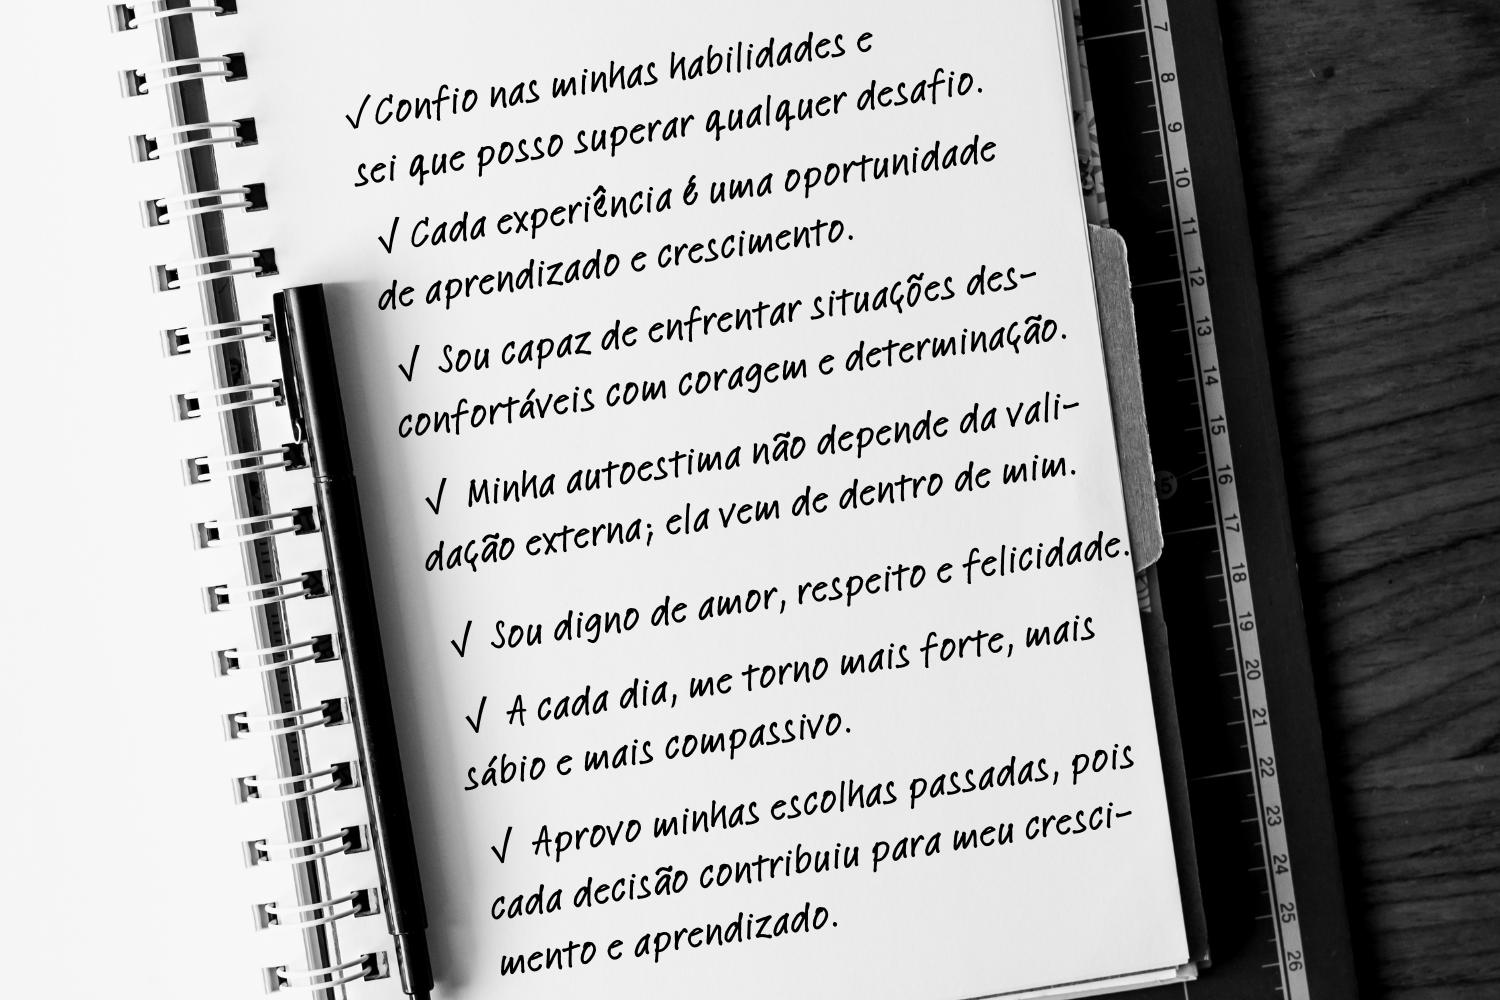 ✓Confio nas minhas habilidades e
sei que posso superar qualquer desafio.
✓ Cada experiência é uma oportunidade
de aprendizado e crescimento.
✓ Sou capaz de enfrentar situações des-
confortáveis com coragem e determinação.
✓ Minha autoestima não depende da vali-
dação externa; ela vem de dentro de mim.
✓ Sou digno de amor, respeito e felicidade.
✓ A cada dia, me torno mais forte, mais
sábio e mais compassivo.
✓ Aprovo minhas escolhas passadas, pois
cada decisão contribuiu para meu cresci-
mento e aprendizado.
7
8
9
10
11
12
13
14
15
16
17
18
19
20
21
22
23
24
25
26